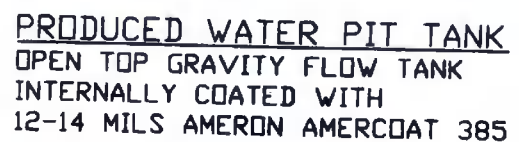 PRODUCED WATER PIT TANK
OPEN TOP GRAVITY FLOW TANK
INTERNALLY COATED WITH
12-14 MILS AMERON AMERCOAT 385